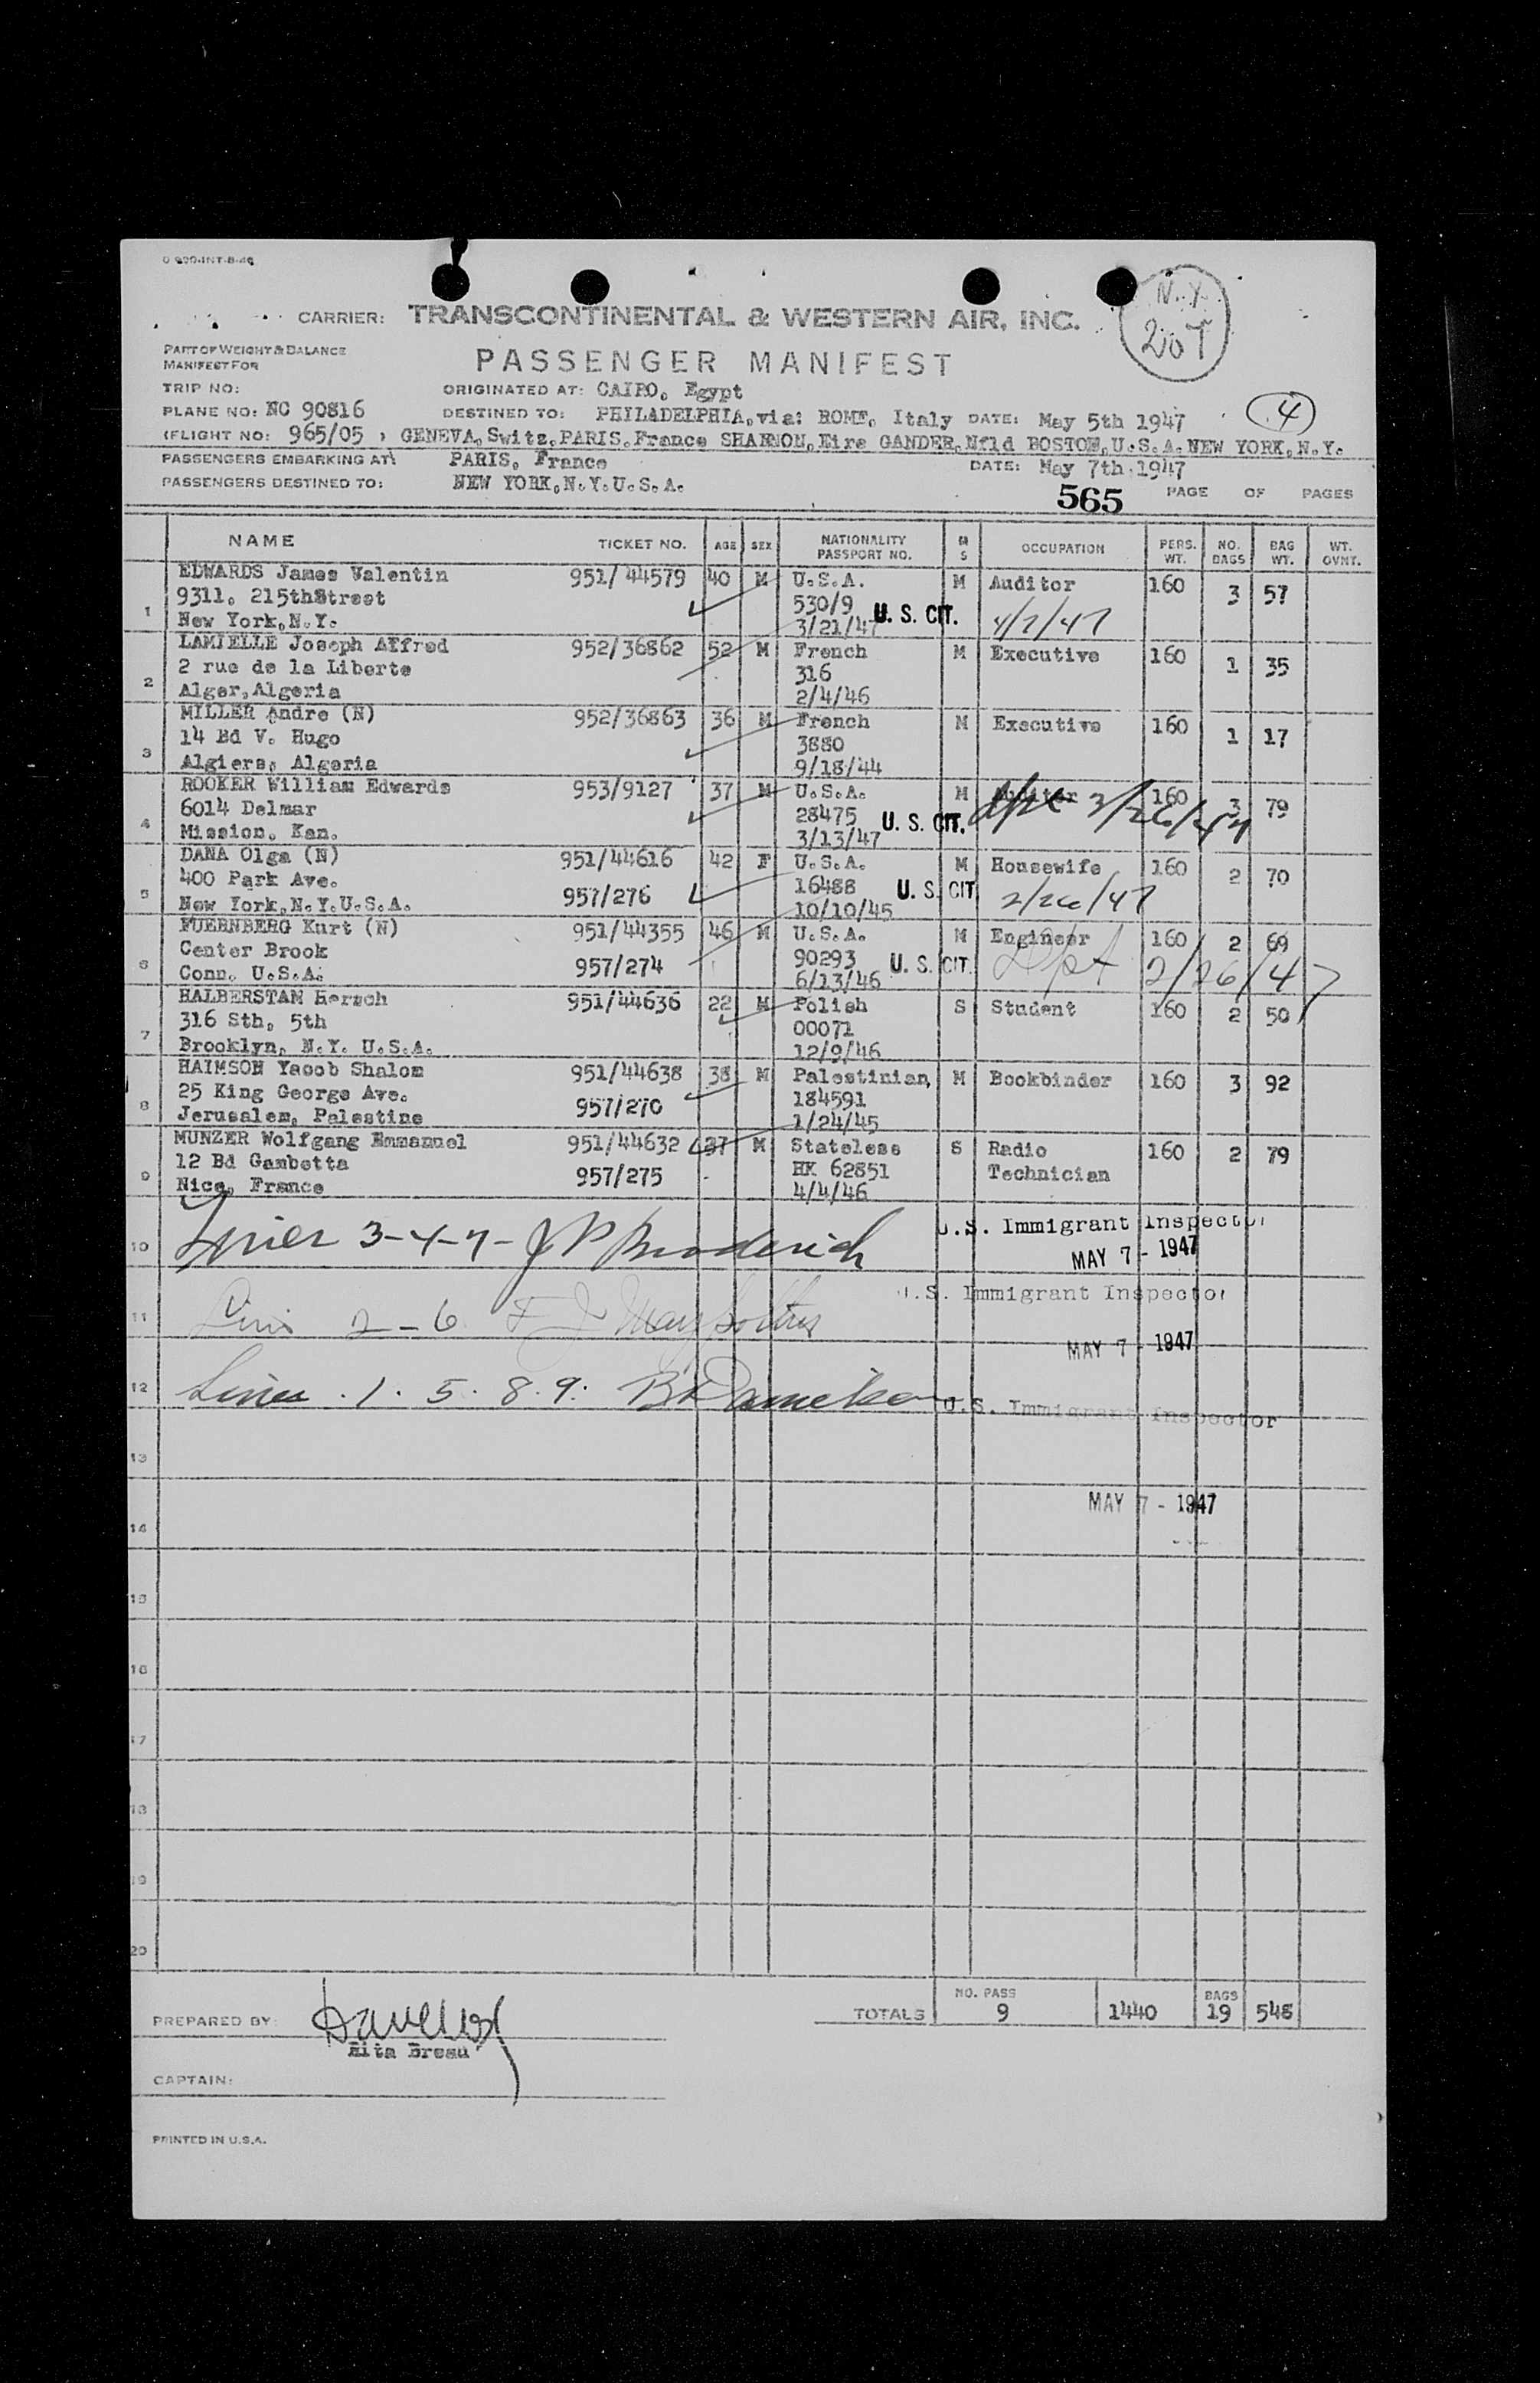 O 920-INT-8-46
CARRIER: TRANSCONTINENTAL & WESTERN AIR, INC.
N.Y.
207
PART OF WEIGHT & BALANCE
MANIFEST FOR
PASSENGER MANIFEST
TRIP NO: ORIGINATED AT: CAIRO, Egypt
PLANE NO: NC 90816 DESTINED TO: PHILADELPHIA, via: ROME, Italy DATE: May 5th 1947 4
FLIGHT NO: 965/05, GENEVA, Switz, PARIS, France SHANNON, Eire GANDER, Nfld BOSTON, U.S.A. NEW YORK, N.Y.
PASSENGERS EMBARKING AT: PARIS, France DATE: May 7th 1947
PASSENGERS DESTINED TO: NEW YORK, N.Y. U.S.A.
565 PAGE OF PAGES
NAME TICKET NO. AGE SEX NATIONALITY PASSPORT NO. M S OCCUPATION PERS. WT. NO. BAGS BAG WT. WT. OVNT.
EDWARDS James Valentin 951/44579 40 M U.S.A. M Auditor 160 3 57
9311, 215thStreet 530/9 U. S. CIT.
1 New York, N.Y. 3/21/47 4/7/47
LAMIELLE Joseph Alfred 952/36862 52 M French M Executive 160 1 35
2 rue de la Liberte 316
2 Alger, Algeria 2/4/46
MILLER Andre (N) 952/36863 36 M French M Executive 160 1 17
14 Bd V. Hugo 3880
3 Algiers, Algeria 9/18/44
ROOKER William Edwards 953/9127 37 M U.S.A. M Auditor 160 3 79
6014 Delmar 28475 U. S. CIT. 3/26/47
4 Mission, Kan. 3/13/47
DANA Olga (N) 951/44616 42 F U.S.A. M Housewife 160 2 70
400 Park Ave. 957/276 16488 U. S. CIT
5 New York, N.Y. U.S.A. 10/10/45 2/26/47
FUERNBERG Kurt (N) 951/44355 46 M U.S.A. M Engineer 160 2 69
Center Brook 957/274 90293 U. S. CIT. Dpt 2/26/47
6 Conn. U.S.A. 6/13/46
HALBERSTAM Hersch 951/44636 22 M Polish S Student 160 2 50
316 Sth, 5th 00071
7 Brooklyn, N.Y. U.S.A. 12/9/46
HAIMSON Yacob Shalom 951/44638 38 M Palestinian, M Bookbinder 160 3 92
25 King George Ave. 957/270 184591
8 Jerusalem, Palestine 1/24/45
MUNZER Wolfgang Emmanuel 951/44632 37 M Stateless S Radio 160 2 79
12 Bd Gambetta 957/275 HK 62851 Technician
9 Nice, France 4/4/46
10 Lines 3-4-7- J P Broderick U.S. Immigrant Inspector
MAY 7 - 1947
U.S. Immigrant Inspector
11 Lines 2-6
MAY 7 - 1947
12 Lines . 1. 5. 8. 9. U.S. Immigrant Inspector
13
MAY 7 - 1947
14
15
16
17
18
19
20
TOTALS NO. PASS 9 1440 BAGS 19 548
PREPARED BY:
Rita Breau
CAPTAIN:
PRINTED IN U.S.A.